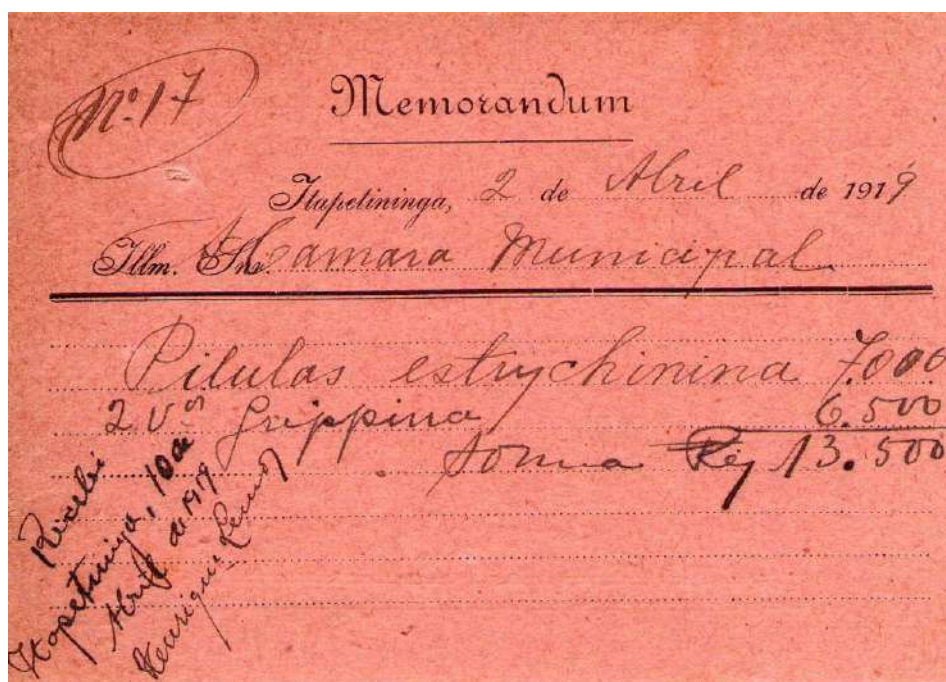 Nº 17
Memorandum
Itapetininga, 2 de Abril de 1919
Illm. Snr. Camara Municipal
Pilulas estrychinina 7.000
2 Vos Grippina 6.500
Somma Rs 13.500
Recebi
Itapetininga, 10 de
Abril de 1919
Henrique Lemos